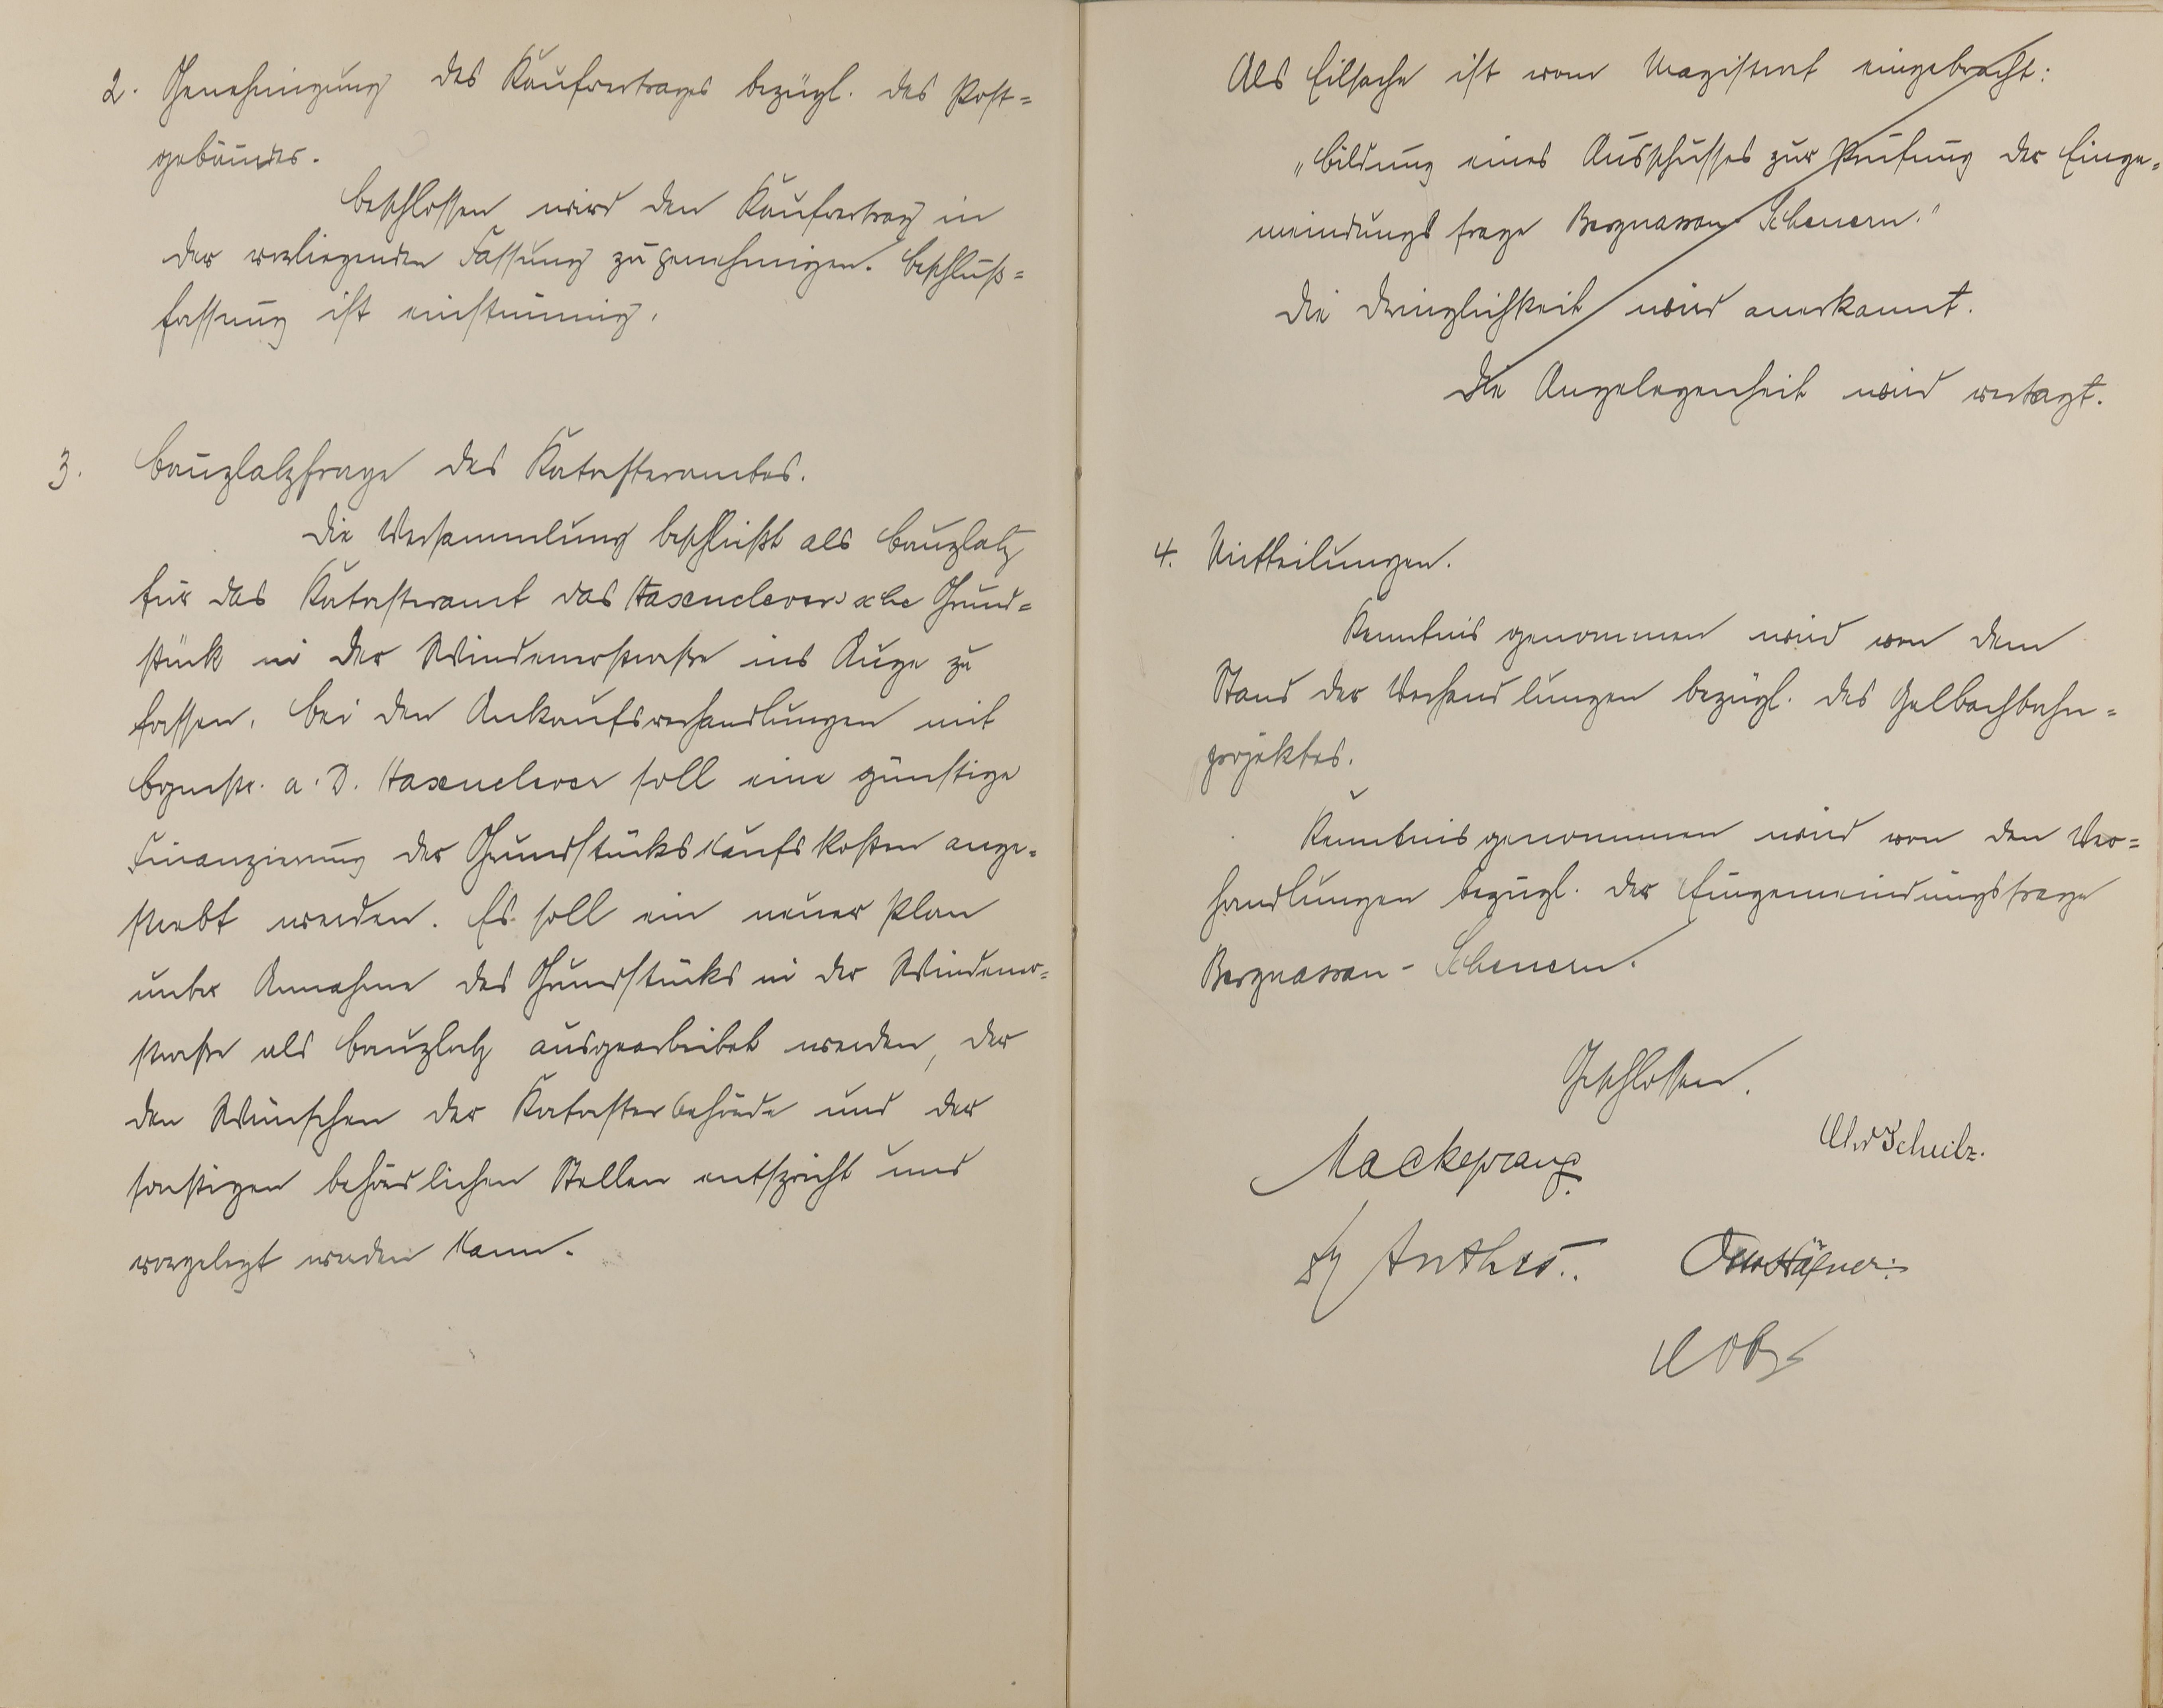 2. Genehmigung des Kaufvertrages bezügl. des Post=
gebäudes.
Beschlossen wird den Kaufvertrag in
der vorliegenden Fassung zu genehmigen. Beschluß=
fassung ist einstimmig.
3. Bauplatzfrage des Katasteramtes.
Die Versammlung beschließt als Bauplatz
für das Katasteramt das Hasenclever'sche Grund=
stück in der Windenerstraße ins Auge zu
fassen. Bei den Ankaufsverhandlungen mit
Bgmstr. a. D. Hasenclever soll eine günstige
Finanzierung der Grundstückskaufskosten ange=
strebt werden. Es soll ein neuer Plan
unter Annahme des Grundstücks in der Windener=
straße als Bauplatz ausgearbeitet werden, der
den Wünschen der Katasterbehörde und der
sonstigen behördlichen Stellen entspricht und
vorgelegt werden kann.
Als Eilsache ist vom Magistrat eingebracht:
„Bildung eines Ausschusses zur Prüfung der Einge=
meindungsfrage Bergnassau Scheuern."
Die Dringlichkeit wird anerkannt.
Die Angelegenheit wird vertagt.
4. Mitteilungen.
Kenntnis genommen wird von dem
Stand der Verhandlungen bezügl. des Gelbachbahn=
projektes.
Kenntnis genommen wird von den Ver=
handlungen bezügl. der Eingemeindungsfrage
Bergnassau - Scheuern.
Geschlossen.
Mackeprang
Anthes